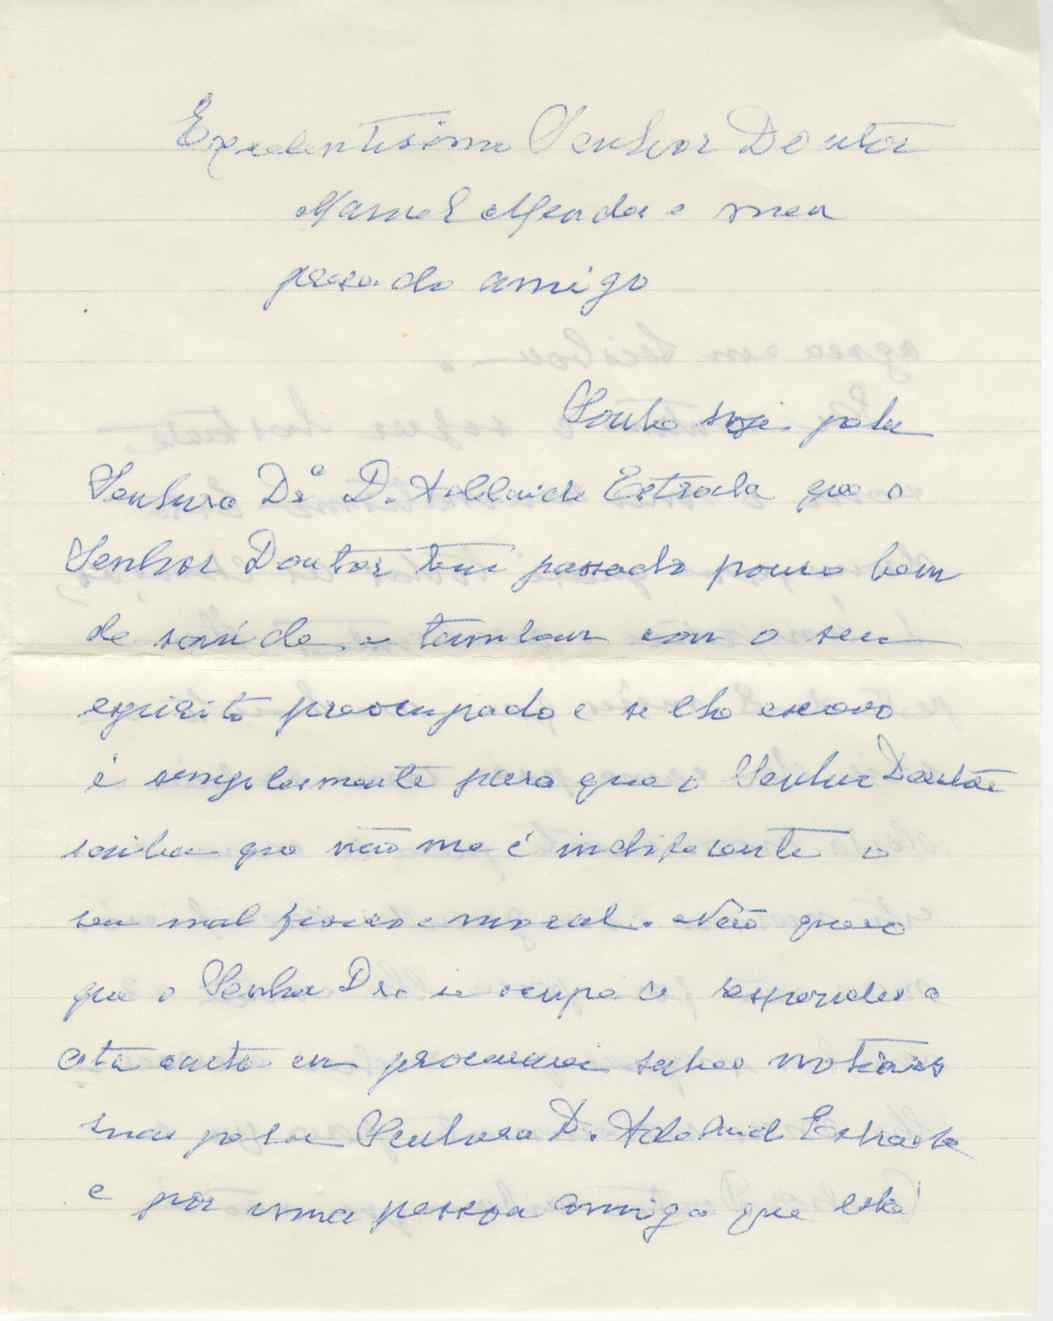 Excelentissimo Senhor Doutor
Manoel Mendes e meu
prezado amigo
Soube hoje pela
Senhora Drª D. Adelaide Estrada que o
Senhor Doutor tem passado pouco bem
de saúde e tambem com o seu
espirito preocupado e se lhe escrevo
é simplesmente para que o Senhor Doutor
saiba que não me é indiferente o
seu mal fisico e moral. Não quero
que o Senhor Dr. se ocupe a responder a
esta carta eu procurarei saber noticias
suas pela Senhora D. Adelaide Estrada
e por uma pessoa amiga que está